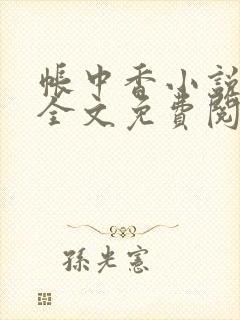 帳中香小說
全文免費閱
孫光憲